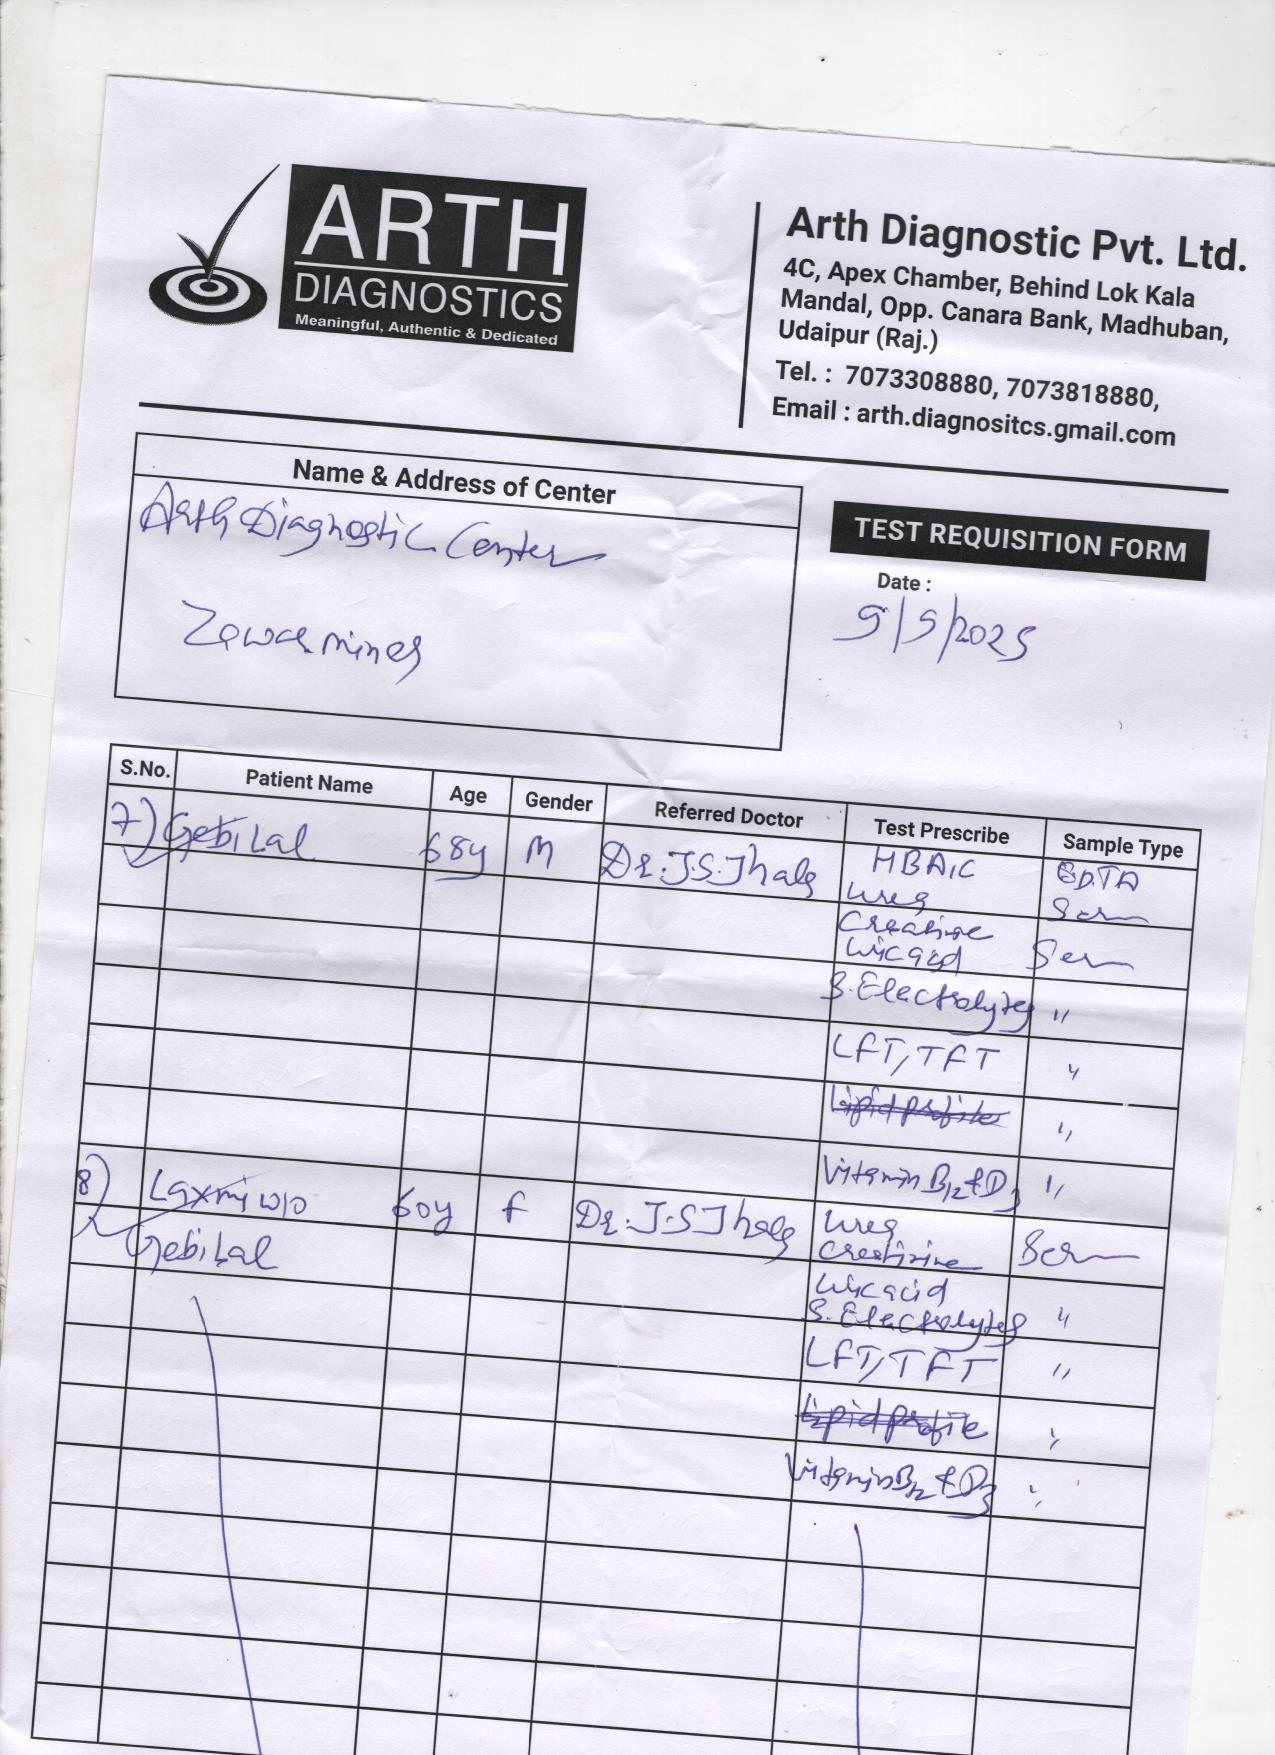 ARTH
DIAGNOSTICS
Meaningful, Authentic & Dedicated
Arth Diagnostic Pvt. Ltd.
4C, Apex Chamber, Behind Lok Kala
Mandal, Opp. Canara Bank, Madhuban,
Udaipur (Raj.)
Tel. : 7073308880, 7073818880,
Email : arth.diagnositcs.gmail.com
Name & Address of Center
Arth Diagnostic Center
Zawar mines
TEST REQUISITION FORM
Date :
9/9/2025
S.No. Patient Name Age Gender Referred Doctor Test Prescribe Sample Type
7) Gebi Lal 68y M Dr. J.S. Jhala HBA1C EDTA
Urea Serum
Creatine
Uric acid Serum
S. Electrolytes "
LFT, TFT "
Lipid profile "
Vitamin B12 & D3 "
8) Laxmi w/o 60y F Dr. J.S Jhala Urea
Gebi Lal Creatinine Serum
Uric acid
S. Electrolytes "
LFT, TFT "
Lipid profile "
Vitamin B12 & D3 "